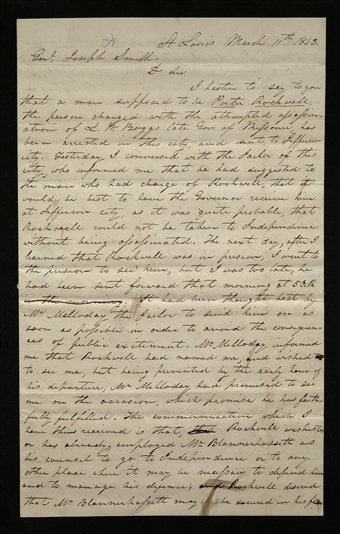 St Louis March 11th 1843.
Genl. Joseph Smith.
Dr Sir.
I hasten to say to you
that a man supposed to be Porter Rockwell,
the person charged with the attempted assassin-
ation of L. W. Boggs late Gov. of Missouri, has
been arrested in this city and sent to Jefferson
city. Yesterday I conversed with the Jailor of this
city, who informed me that he had suggested to
the man who had charge of Rockwell, that it
would be best to have the Governor receive him
at Jefferson city, as it was quite probable, that
Rockwell could not be taken to Independence
without being assassinated. The next day, after I
learned that Rockwell was in prison, I went to
the prison to see him, but I was too late, he
had been sent forward that morning at 5 Oclk
in the morning. It had been thought best by
Mr Melloday the Jailor to send him on as
soon as possible in order to avoid the consequen-
ces of public excitement. Mr Melloday informed
me that Rockwell had named me, and wished
to see me, but being prevented by the early hour of
his departure, Mr Melloday had promised to see
me on the occasion, which promise he has faith-
fully fulfilled. The communication which I
have thus received is that, that Rockwell wishes to
or has already, employed Mr Blannerhassett as
his counsel to go to Independence or to any
other place where it may be necessary to defend him
and to manage his defence; and Rockwell desired
that Mr Blannerhassett may be secured in his fee